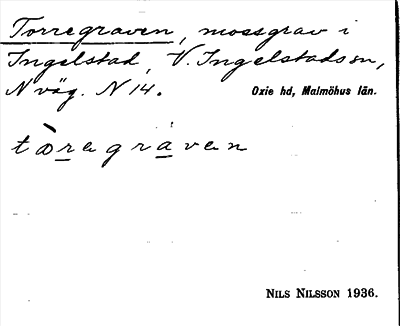 Torregraven, mossgrav i
Ingelstad, V. Ingelstads sn,
N väg. N 14. Oxie hd, Malmöhus län.
tòregráven
NILS NILSSON 1936.